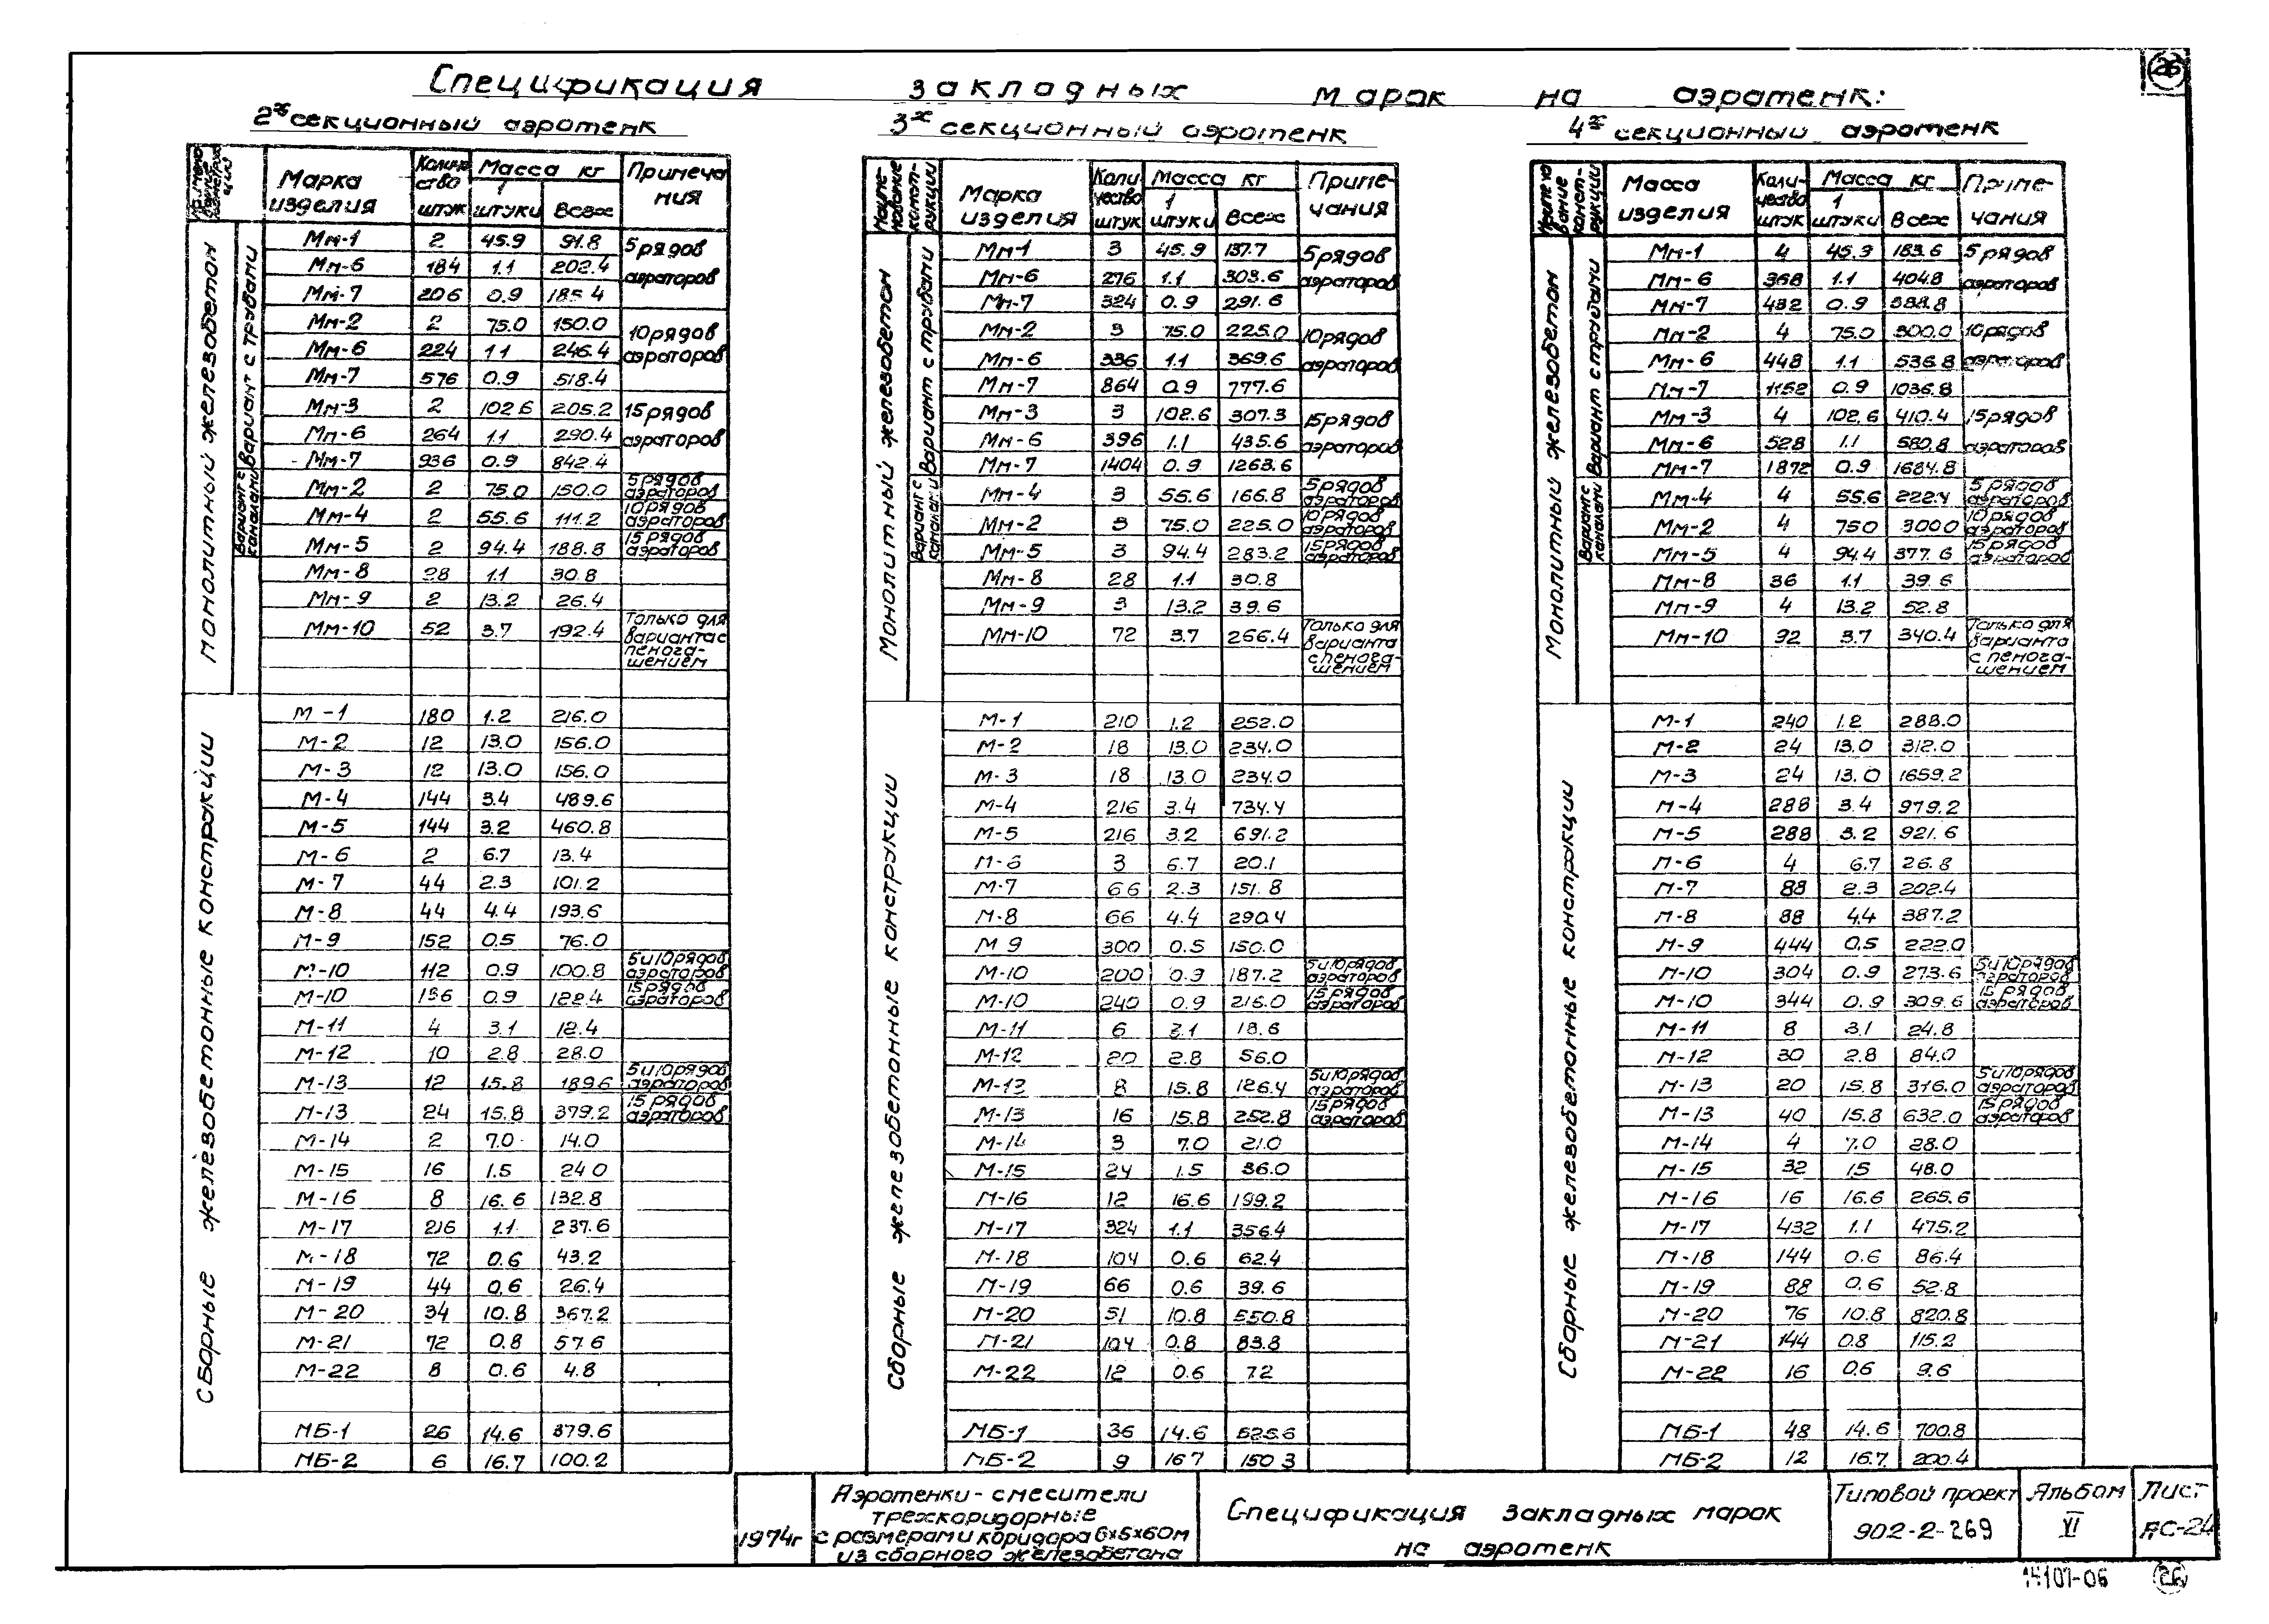 26
Спецификация закладных марок на аэротенк:
2х секционный аэротенк
Марка изделия | Количество штук | Масса кг 1 штуки | Всех | Примечания
Монолитный железобетон
Вариант с трубами
Мм-1 2 45.9 91.8 5 рядов
Мм-6 184 1.1 202.4 аэраторов
Мм-7 206 0.9 185.4
Мм-2 2 75.0 150.0 10 рядов
Мм-6 224 1.1 246.4 аэраторов
Мм-7 576 0.9 518.4
Мм-3 2 102.6 205.2 15 рядов
Мм-6 264 1.1 290.4 аэраторов
Мм-7 936 0.9 842.4
Вариант с каналами
Мм-2 2 75.0 150.0 5 рядов аэраторов
Мм-4 2 55.6 111.2 10 рядов аэраторов
Мм-5 2 94.4 188.8 15 рядов аэраторов
Мм-8 28 1.1 30.8
Мм-9 2 13.2 26.4
Мм-10 52 3.7 192.4 Только для варианта с пеногашением
Сборные железобетонные конструкции
М-1 180 1.2 216.0
М-2 12 13.0 156.0
М-3 12 13.0 156.0
М-4 144 3.4 489.6
М-5 144 3.2 460.8
М-6 2 6.7 13.4
М-7 44 2.3 101.2
М-8 44 4.4 193.6
М-9 152 0.5 76.0
М-10 112 0.9 100.8 5 и 10 рядов аэраторов
М-10 136 0.9 122.4 15 рядов аэраторов
М-11 4 3.1 12.4
М-12 10 2.8 28.0
М-13 12 15.8 189.6 5 и 10 рядов аэраторов
М-13 24 15.8 379.2 15 рядов аэраторов
М-14 2 7.0 14.0
М-15 16 1.5 24.0
М-16 8 16.6 132.8
М-17 216 1.1 237.6
М-18 72 0.6 43.2
М-19 44 0.6 26.4
М-20 34 10.8 367.2
М-21 72 0.8 57.6
М-22 8 0.6 4.8
МБ-1 26 14.6 379.6
МБ-2 6 16.7 100.2
3х секционный аэротенк
Наименование конструкции | Марка изделия | Количество штук | Масса кг 1 штуки | Всех | Примечания
Монолитный железобетон
Вариант с трубами
Мм-1 3 45.9 137.7 5 рядов
Мм-6 276 1.1 303.6 аэраторов
Мм-7 324 0.9 291.6
Мм-2 3 75.0 225.0 10 рядов
Мм-6 336 1.1 369.6 аэраторов
Мм-7 864 0.9 777.6
Мм-3 3 102.6 307.3 15 рядов
Мм-6 396 1.1 435.6 аэраторов
Мм-7 1404 0.9 1263.6
Вариант с каналами
Мм-4 3 55.6 166.8 5 рядов аэраторов
Мм-2 3 75.0 225.0 10 рядов аэраторов
Мм-5 3 94.4 283.2 15 рядов аэраторов
Мм-8 28 1.1 30.8
Мм-9 3 13.2 39.6
Мм-10 72 3.7 266.4 Только для варианта с пеногашением
Сборные железобетонные конструкции
М-1 210 1.2 252.0
М-2 18 13.0 234.0
М-3 18 13.0 234.0
М-4 216 3.4 734.4
М-5 216 3.2 691.2
М-6 3 6.7 20.1
М-7 66 2.3 151.8
М-8 66 4.4 290.4
М 9 300 0.5 150.0
М-10 200 0.9 187.2 5 и 10 рядов аэраторов
М-10 240 0.9 216.0 15 рядов аэраторов
М-11 6 3.1 18.6
М-12 20 2.8 56.0
М-12 8 15.8 126.4 5 и 10 рядов аэраторов
М-13 16 15.8 252.8 15 рядов аэраторов
М-14 3 7.0 21.0
М-15 24 1.5 36.0
М-16 12 16.6 199.2
М-17 324 1.1 356.4
М-18 104 0.6 62.4
М-19 66 0.6 39.6
М-20 51 10.8 550.8
М-21 104 0.8 83.8
М-22 12 0.6 7.2
МБ-1 36 14.6 525.6
МБ-2 9 16.7 150.3
4х секционный аэротенк
Масса изделия | Количество штук | Масса кг 1 штуки | Всех | Примечания
Монолитный железобетон
Вариант с трубами
Мм-1 4 45.9 183.6 5 рядов
Мм-6 368 1.1 404.8 аэраторов
Мм-7 432 0.9 388.8
Мм-2 4 75.0 300.0 10 рядов
Мм-6 448 1.1 536.8 аэраторов
Мм-7 1152 0.9 1036.8
Мм-3 4 102.6 410.4 15 рядов
Мм-6 528 1.1 580.8 аэраторов
Мм-7 1872 0.9 1684.8
Вариант с каналами
Мм-4 4 55.6 222.4 5 рядов аэраторов
Мм-2 4 75.0 300.0 10 рядов аэраторов
Мм-5 4 94.4 377.6 15 рядов аэраторов
Мм-8 36 1.1 39.6
Мм-9 4 13.2 52.8
Мм-10 92 3.7 340.4 Только для варианта с пеногашением
Сборные железобетонные конструкции
М-1 240 1.2 288.0
М-2 24 13.0 312.0
М-3 24 13.0 1659.2
М-4 288 3.4 979.2
М-5 288 3.2 921.6
М-6 4 6.7 26.8
М-7 88 2.3 202.4
М-8 88 4.4 387.2
М-9 444 0.5 222.0
М-10 304 0.9 273.6 5 и 10 рядов аэраторов
М-10 344 0.9 309.6 15 рядов аэраторов
М-11 8 3.1 24.8
М-12 30 2.8 84.0
М-13 20 15.8 316.0 5 и 10 рядов аэраторов
М-13 40 15.8 632.0 15 рядов аэраторов
М-14 4 7.0 28.0
М-15 32 1.5 48.0
М-16 16 16.6 265.6
М-17 432 1.1 475.2
М-18 144 0.6 86.4
М-19 88 0.6 52.8
М-20 76 10.8 820.8
М-21 144 0.8 115.2
М-22 16 0.6 9.6
МБ-1 48 14.6 700.8
МБ-2 12 16.7 200.4
1974г
Аэротенки-смесители
трехкоридорные
с размерами коридора 6х5х60м
из сборного железобетона
Спецификация закладных марок
на аэротенк
Типовой проект
902-2-269
Альбом
VI
Лист
АС-24
14107-06
26